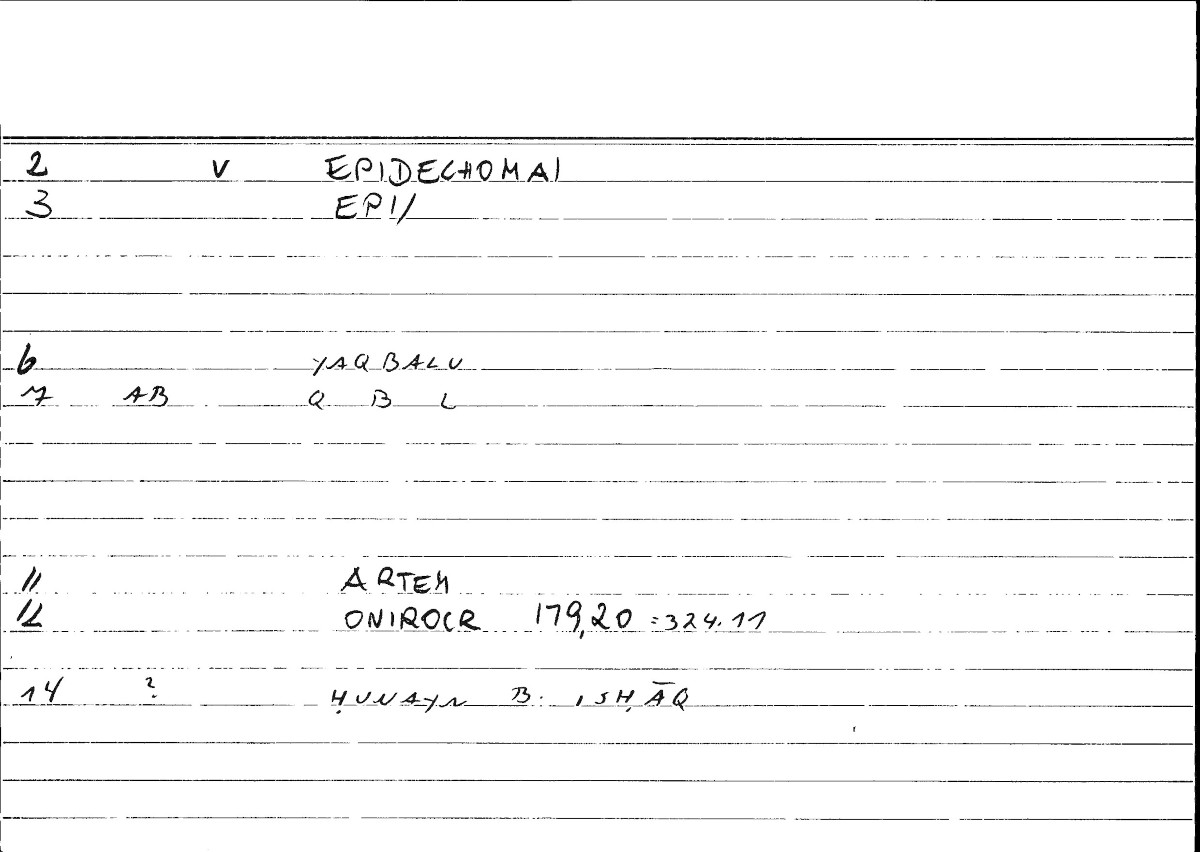 2 V EPIDECHOMAI
3 EPI/
6 YAQBALU
7 AB Q B L
11 ARTEM
12 ONIROCR 179,20 =324.11
14 ? ḤUNAYN B. ISḤĀQ